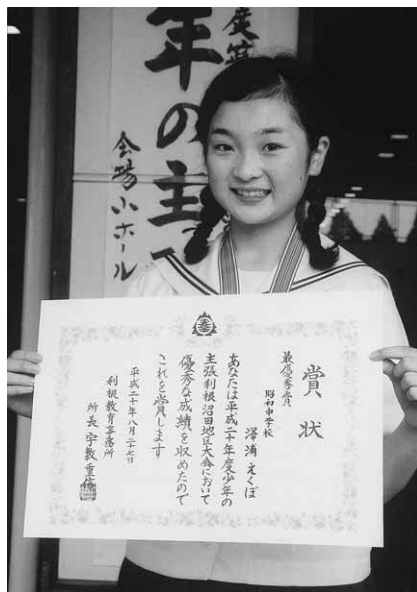 年の主
会場小ホール
賞状
最優秀賞
昭和中学校
澤浦えくぼ
あなたは平成二十年度少年の
主張利根沼田地区大会において
優秀な成績を収めたので
これを賞します
平成二十年八月二十七日
利根教育事務所
所長宇敷重